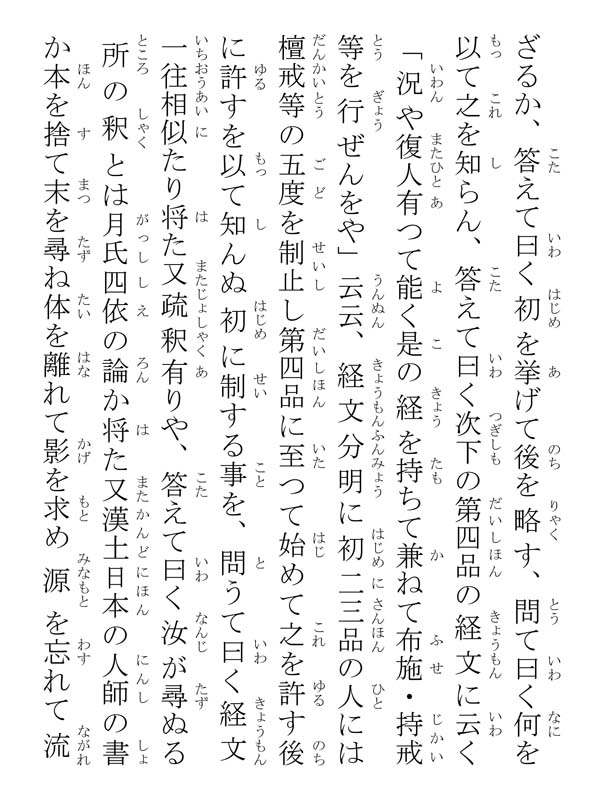 ざるか、答えて曰く初を挙げて後を略す、問て曰く何を
以て之を知らん、答えて曰く次下の第四品の経文に云く
「況や復人有つて能く是の経を持ちて兼ねて布施・持戒
等を行ぜんをや」云云、経文分明に初二三品の人には
檀戒等の五度を制止し第四品に至つて始めて之を許す後
に許すを以て知んぬ初に制する事を、問うて曰く経文
一往相似たり将た又疏釈有りや、答えて曰く汝が尋ぬる
所の釈とは月氏四依の論か将た又漢土日本の人師の書
か本を捨て末を尋ね体を離れて影を求め源を忘れて流